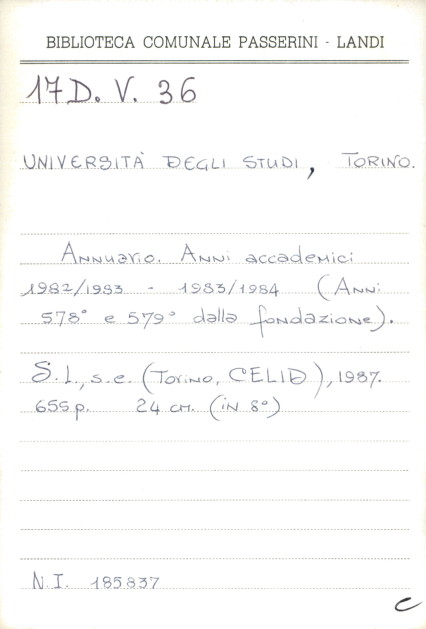 BIBLIOTECA COMUNALE PASSERINI - LANDI
17D. V. 36
UNIVERSITÀ DEGLI STUDI, TORINO.
Annuario. Anni accademici
1982/1983 - 1983/1984 (Anni
578° e 579° dalla fondazione).
S.l., s.e. (Torino, CELID), 1987.
655 p. 24 cm. (in 8°)
N.I. 185837
C